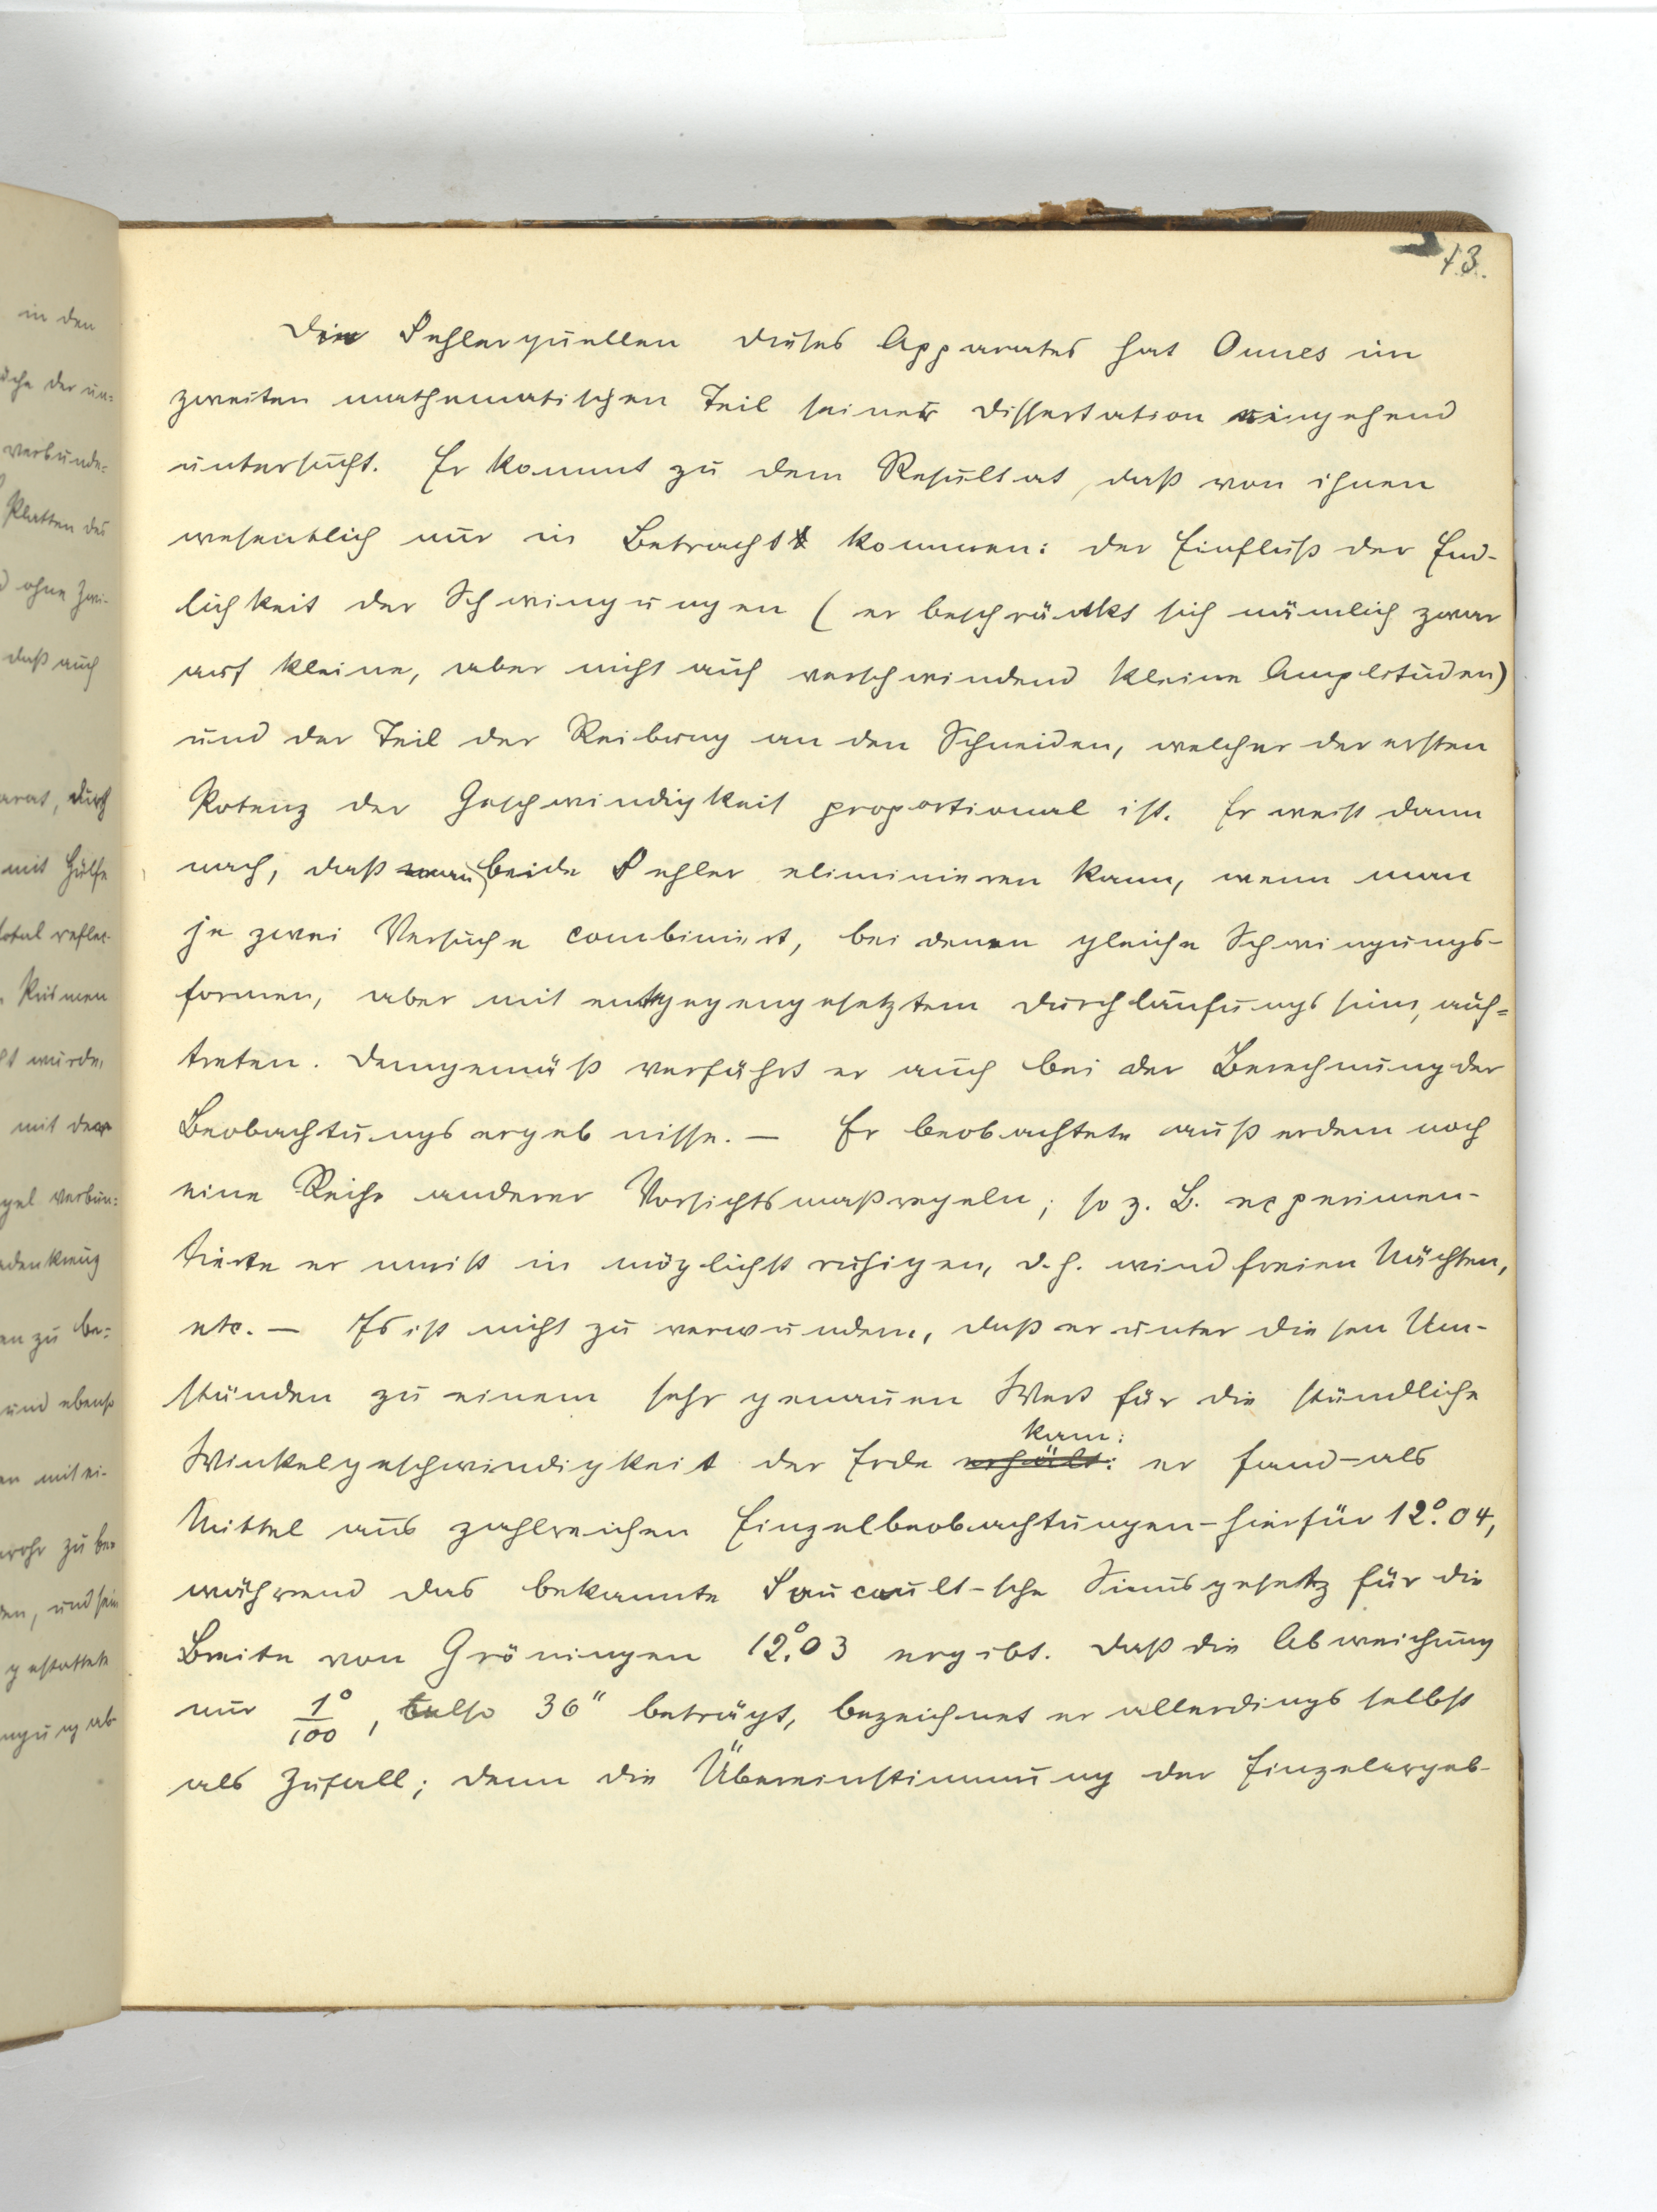 13.
Die Fehlerquellen dieses Apparates hat Onnes im
zweiten mathematischen Teil seiner Dissertation eingehend
untersucht. Er kommt zu dem Resultat, daß von ihnen
wesentlich nur in Betracht kommen: der Einfluß der End-
lichkeit der Schwingungen (er beschränkt sich nämlich zwar
auf kleine, aber nicht auf verschwindend kleine Amplituden)
und der Teil der Reibung an den Schneiden, welcher der ersten
Potenz der Geschwindigkeit proportional ist. Er weist dann
nach, daß man beide Fehler eliminieren kann, wenn man
je zwei Versuche combiniert, bei denen gleiche Schwingungs-
formen, aber mit entgegengesetztem Durchlaufungssinn, auf=
treten. Demgemäß verfährt er auch bei der Berechnung der
Beobachtungsergebnisse. — Er beobachtete außerdem noch
eine Reihe anderer Vorsichtsmaßregeln; so z. B. experimen-
tierte er meist in möglichst ruhigen, d. h. windfreien Nächten,
etc. — Es ist nicht zu verwundern, daß er unter diesen Um-
ständen zu einem sehr genauen Wert für die stündliche
kam:
Winkelgeschwindigkeit der Erde erhält: er fand - als
Mittel aus zahlreichen Einzelbeobachtungen - hierfür 12°.04,
während das bekannte Foucault-sche Sinusgesetz für die
Breite von Gröningen 12°.03 ergibt. Daß die Abweichung
nur 1°/100, also 36" beträgt, bezeichnet er allerdings selbst
als Zufall; denn die Übereinstimmung der Einzelergeb-
in den
verbunde-
Platten des
ohne Zwei-
daß auch
durch
mit Hülfe
total reflec-
Prismen
wurde,
mit dem
verbun=
zu be=
und ebenso
mit ei-
zu be-
und sein
gestattete